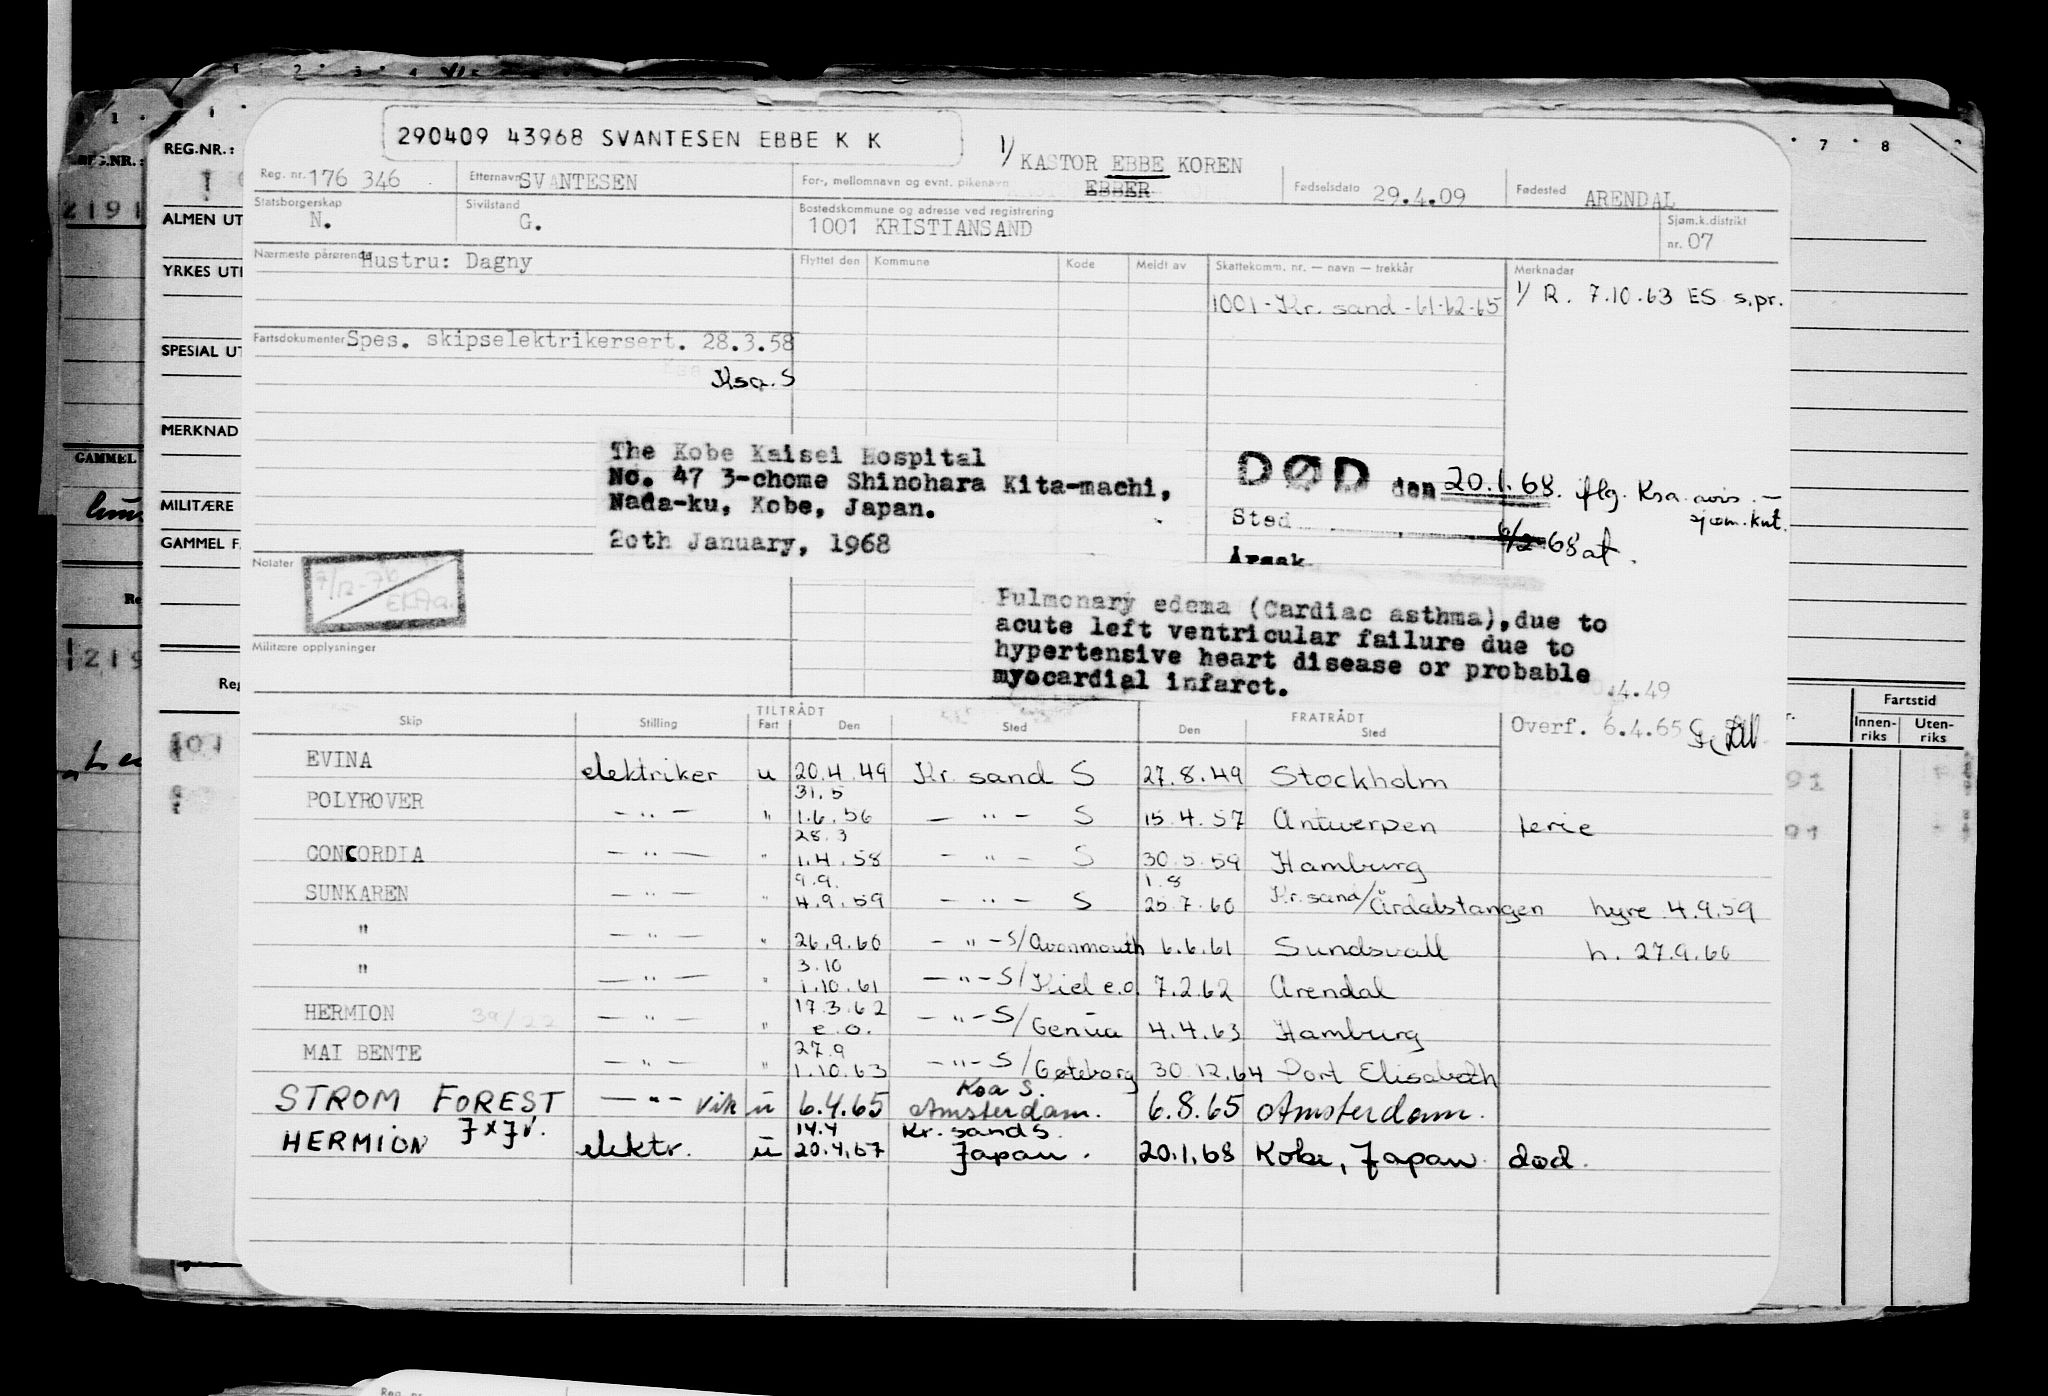 290409 43968 SVANTESEN EBBE K K
1/ KASTOR EBBE KOREN
EBBER
REG.NR.:
Reg. nr. 176 346 Etternavn SVANTESEN For-, mellomnavn og evnt. pikenavn Fødselsdato 29.4.09 Fødested ARENDAL
Statsborgerskap N. Sivilstand G. Bostedskommune og adresse ved registrering 1001 KRISTIANSAND Sjøm.k.distrikt nr. 07
ALMEN UT
Nærmeste pårørende Hustru: Dagny Flyttet den Kommune Kode Meldt av Skattekomm. nr. — navn — trekkår Merknader
YRKES UT
1001 - Kr. sand - 61-62-65 1/ R. 7.10.63 ES s.pr.
Fartsdokumenter Spes. skipselektrikersert. 28.3.58
SPESIAL UT
Ksa. S
MERKNAD
GAMMEL
The Kobe Kaisei Hospital
No. 47 3-chome Shinohara Kita-machi,
Nada-ku, Kobe, Japan.
20th January, 1968
MILITÆRE
GAMMEL F
DØD den 20.1.68. iflg. Ksa. avis. —
sjøm.knt.
Sted
6/2-68 at.
Årsak
Notater
7/12-76
Pulmonary edema (Cardiac asthma), due to
acute left ventricular failure due to
hypertensive heart disease or probable
myocardial infarct.
Militære opplysninger
.4.49
Overf. 6.4.65
Skip Stilling TILTRÅDT Fart Den Sted FRATRÅDT Den Sted
Fartstid
Innen-riks Uten-riks
EVINA elektriker u 20.4.49 Kr. sand S 27.8.49 Stockholm
31.5
POLYROVER — " — " 1.6.56 — " — S 15.4.57 Antwerpen ferie
28.3
CONCORDIA — " — " 1.4.58 — " — S 30.5.59 Hamburg
9.9. 1.8
SUNKAREN — " — " 4.9.59 — " — S 25.7.60 Kr. sand/Årdalstangen hyre 4.9.59
" — " — " 26.9.60 — " — S/Avonmouth 6.6.61 Sundsvall h. 27.9.60
3.10
" — " — " 1.10.61 — " — S/Kiel e.o. 7.2.62 Arendal
HERMION 39/22 — " — " 17.3.62 e.o. — " — S/Genua 4.4.63 Hamburg
27.9
MAI BENTE — " — " 1.10.63 — " — S/Gøteborg 30.12.64 Port Elisabeth
Ksa S.
STROM FOREST — " — vik u 6.4.65 Amsterdam. 6.8.65 Amsterdam.
14.4 Kr. sand S.
HERMION elektr. u 20.4.67 Japan. 20.1.68 Kobe, Japan. død.
Reg. nr.